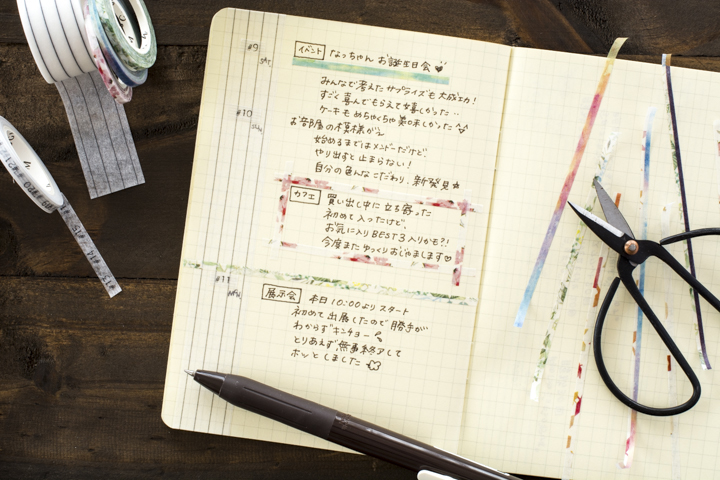 #9
SAT
イベント なっちゃん お誕生日会
みんなで考えた サプライズも 大成功!
すごく 喜んでもらえて 嬉しかった…
ケーキも めちゃくちゃ 美味しかった
#10
SUN
お部屋の模様がえ
始めるまでは メンドーだけど、
やり出すと 止まらない!
自分の色んな こだわり、新発見
カフェ 買い出し中に 立ち寄った
初めて 入ったけど、
お気に入り BEST3入りかも?!
今度また ゆっくり おじゃまします
#11
MON
展示会 本日 10:00より スタート
初めて 出展したので 勝手が
わからず キンチョー
とりあえず 無事終了して
ホッと しました